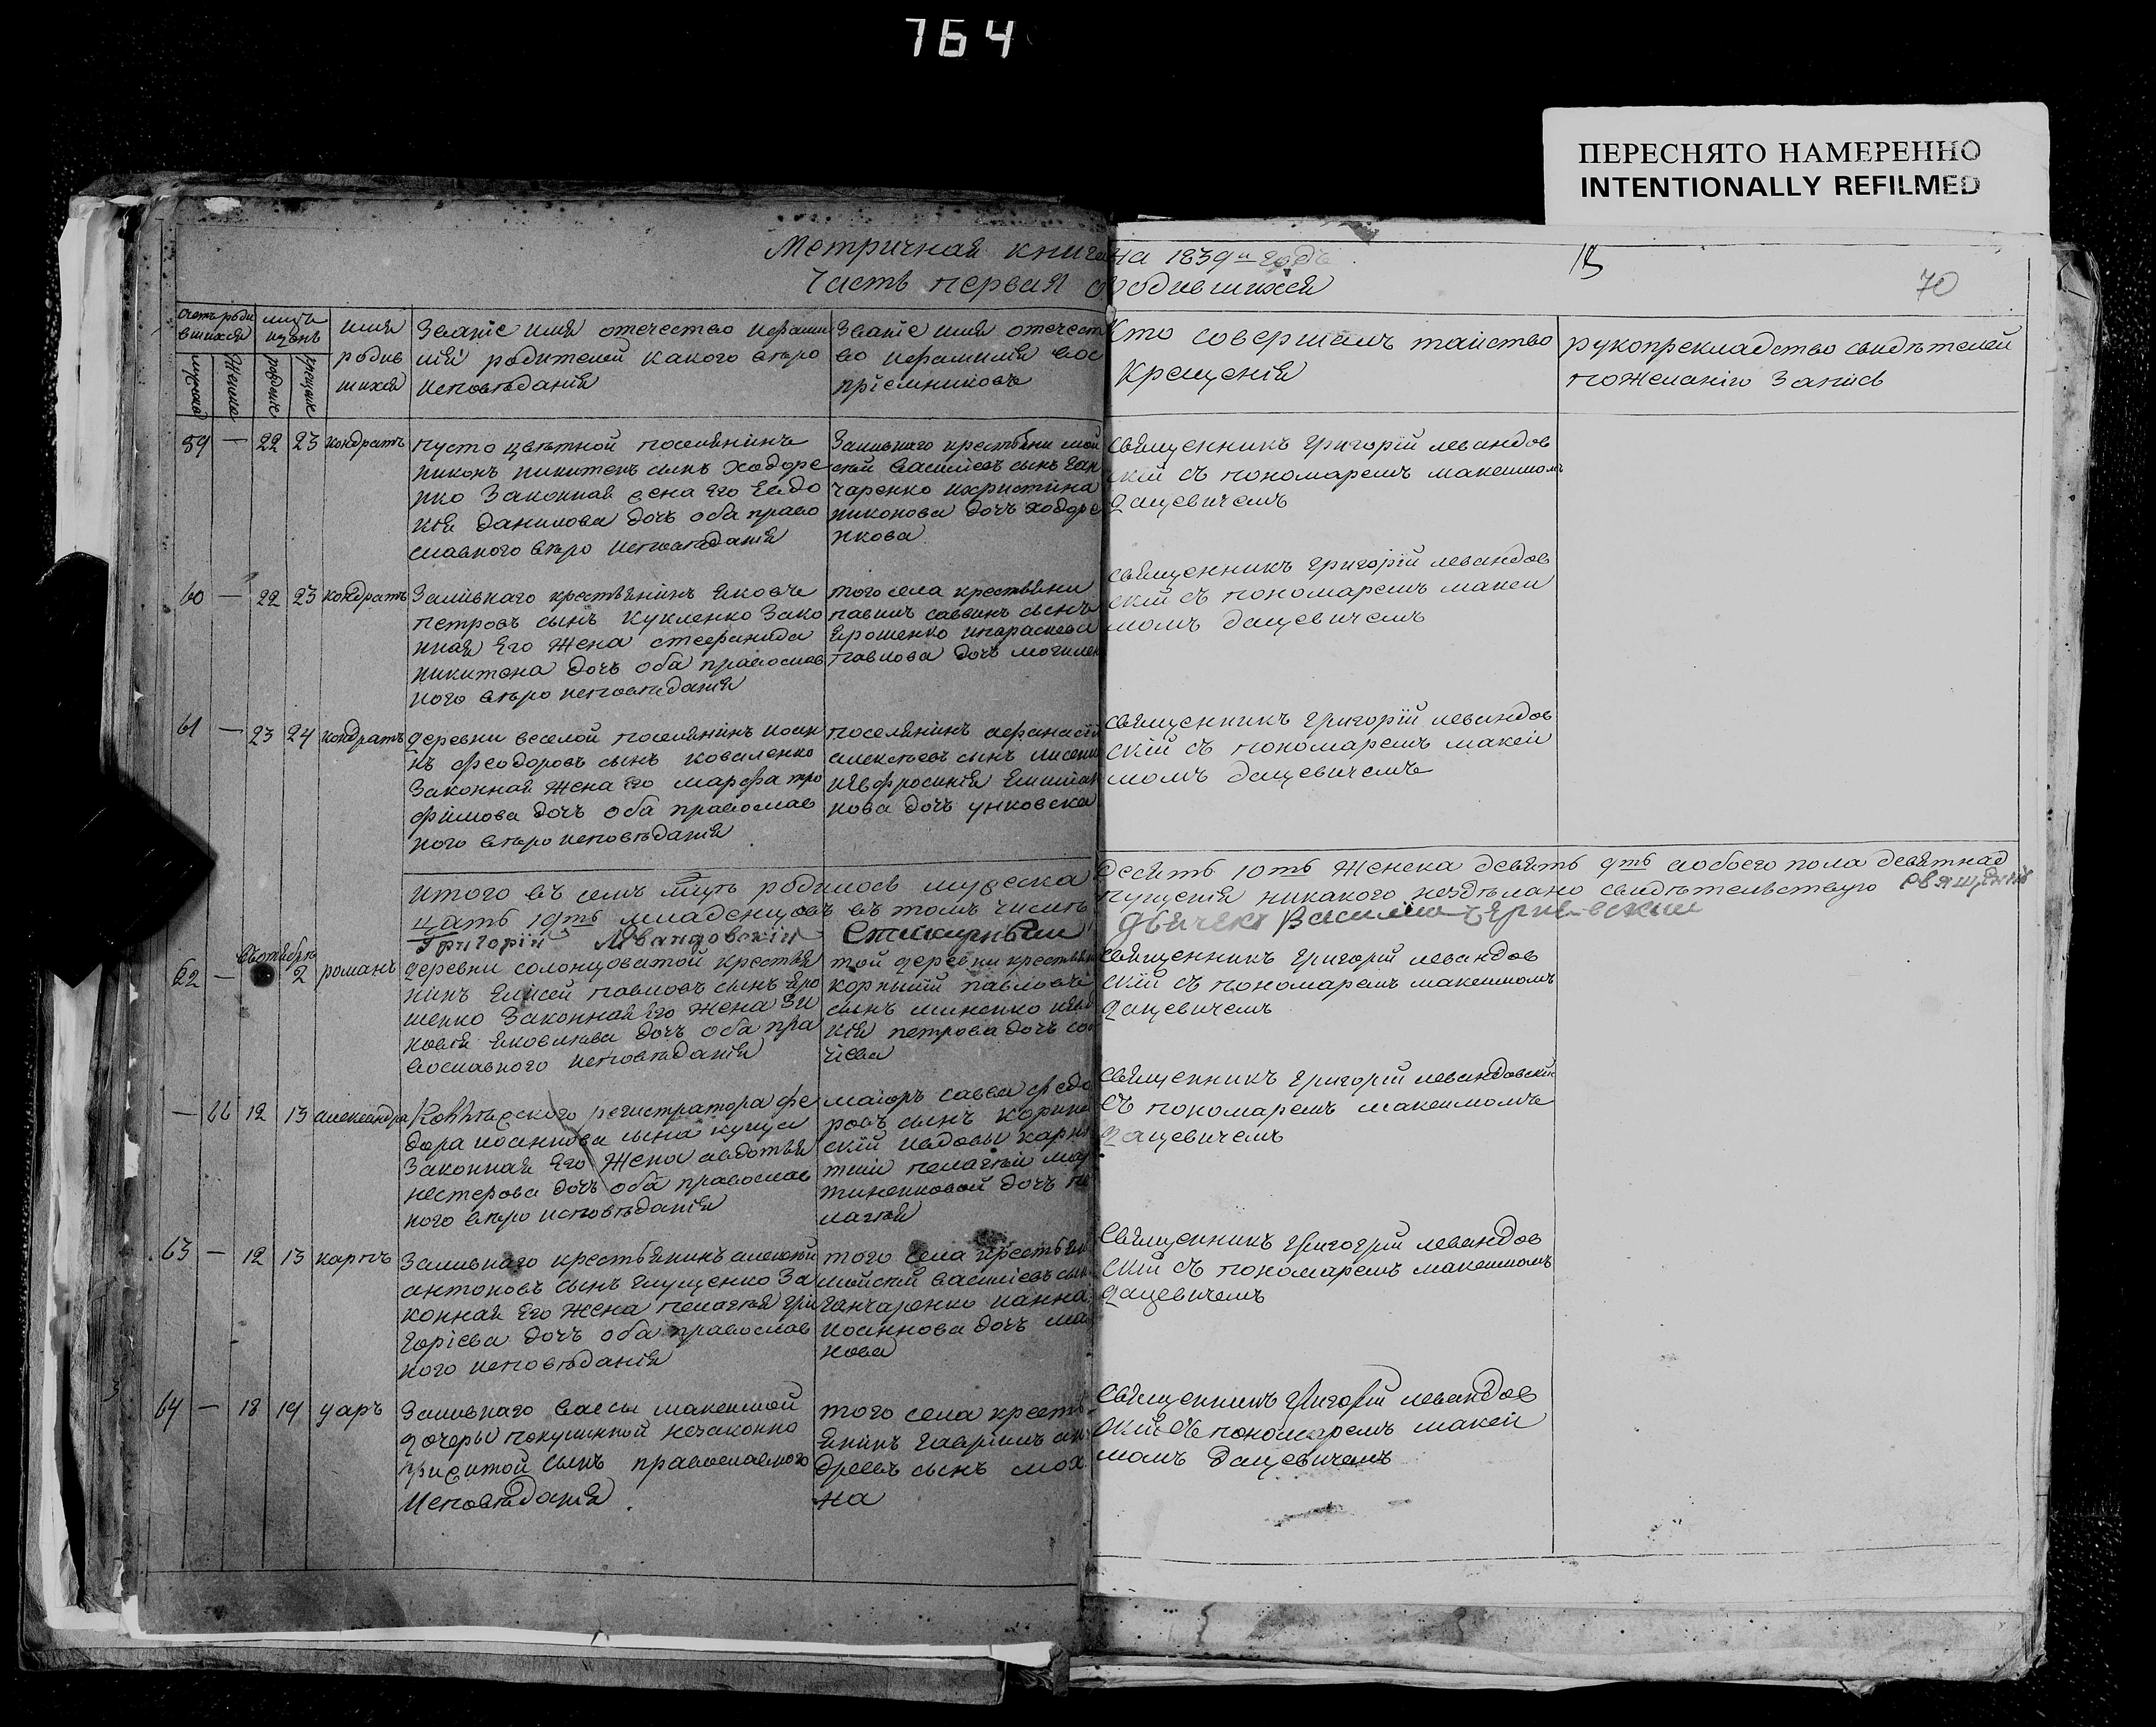 764
ПЕРЕСНЯТО НАМЕРЕННО
INTENTIONALLY REFILMED
Метричная книга на 1839й годъ
18
70
Часть первая о родившихся
Счетъ роди
вшихся
мужеска
женска
мцъ
и день
рожденіе
крещеніе
имя
родив
шихся
Званіе имя отечество ифами
лія родителей какого веъро
исповѣданія
Званіе имя отечест
во ифамилия вос
пріемниковъ
Кто совершалъ таиство
крещенія
рукоприкладство свидѣтелей
пожеланію Записъ
59 — 22 23 кондратъ
пусто цвѣтной поселянинъ
никонъ никитенъ сынъ ходоре
нко Законная жена Его Евдо
кія данилова дочь оба право
славного вѣро исповѣданія
Заливнаго крестьяни мой
сей василіевъ сынъ Ган
чаренко ихристина
никонова дочь ходоре
нкова
священникъ григорій левандов
скій съ пономаремъ максимомъ
дацевичемъ
60 — 22 23 кондратъ
Заливнаго крестьянинъ яковъ
петровъ сынъ кукленко Зако
нная Его жена стефанида
никитена дочь оба православ
ного вѣро исповѣданія
того села крестьяни
павилъ саввинъ сынъ
Ерошенко ипараскева
павлова дочь могилен
священникъ григорій левандов
скій съ пономаремъ макси
момъ дацевичемъ
61 — 23 24 кондратъ
деревни веселой поселянинъ иоан
нъ феодоровъ сынъ коваленко
Законная жена Его марфа тро
фимова дочь оба православ
ного вѣро исповѣданія
поселянинъ афанасій
алексѣевъ сынъ лисенк
иевфросинія Емилиан
нова дочь унковска
священникъ григорій левандов
скій съ пономаремъ макси
момъ дацевичемъ
итого въ семъ мцѣ родилось мужеска десять 10ть женска девять 9ть аобоего пола девятнад
цать 19ть младенцовъ въ томъ числѣ пущенія никакого нездѣлано свидѣтельствую священникъ
Григорій Левандовскій дьячекъ Василій
октября
62 — 2 романъ
деревни солонцоватой крестья
нинъ Елисей павловъ сынъ Еро
шенко Законная Его жена Зи
новія яковлева дочь оба пра
вославного исповѣданія
той деревни крестьяни
корнилій павловъ
сынъ миненко
кія петрова дочь
чіева
священникъ григорій левандов
скій съ пономаремъ максимомъ
дацевичемъ
— 66 12 13 александра
регистратора фе
дора иоаннова сына
Законная Его жена авдотья
нестерова дочь оба православ
ного вѣро исповѣданія
маіоръ савва федо
ровъ сынъ
скій ивдовы
пелагеи мар
тиненковой дочь пе
лагея
священникъ григорій левандовскій
съ пономаремъ максимомъ
дацевичемъ
63 — 12 13 карпъ
Заливнаго крестьянинъ алексѣй
антоновъ сынъ глущенко За
конная Его жена пелагея гри
горіева дочь оба православ
ного исповѣданія
того села крестьян
мойсей василіевъ сын
ганчаренко ианна
иоаннова дочь ма
нова
священникъ григорій левандов
скій съ пономаремъ максимомъ
дацевичемъ
64 — 18 19 уаръ
Заливнаго вассы максимой
дочеры покушиной незаконно
прижитой сынъ православного
исповѣданія
того села кресть
янинъ гавріилъ ан
дреевъ сынъ мох
на
священникъ григорій левандов
скій съ пономаремъ макси
момъ дацевичемъ